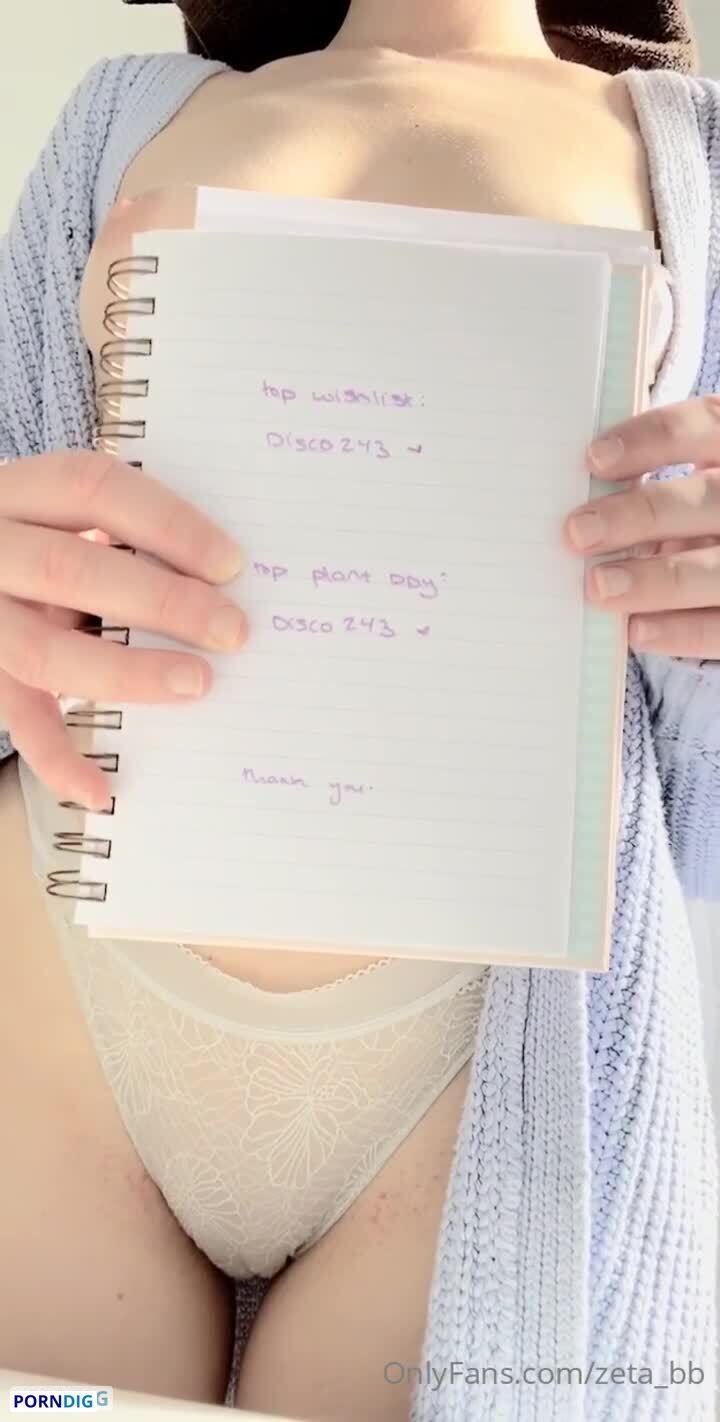 top wishlist:
Disco 243
top plant DDy:
Disco 243
thank you.
OnlyFans.com/zeta_bb
PORNDIGG